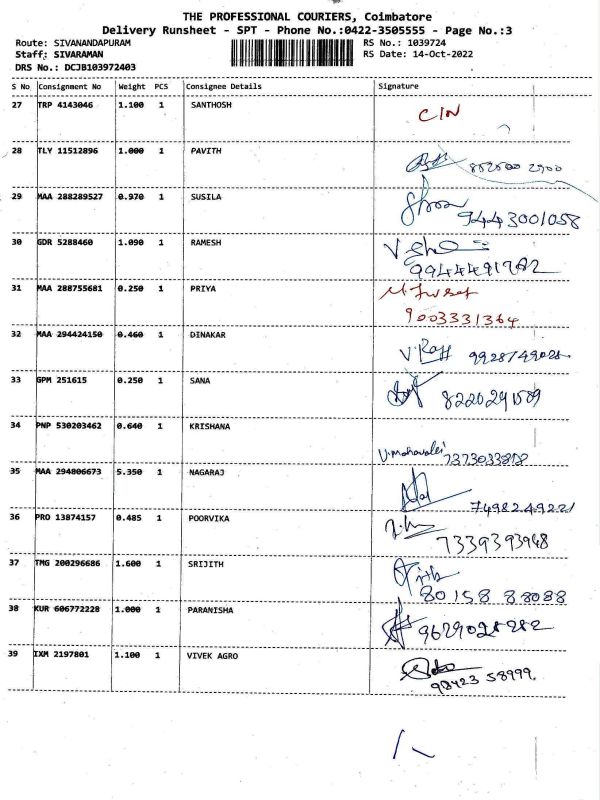 THE PROFESSIONAL COURIERS, Coimbatore
Delivery Runsheet - SPT - Phone No.:0422-3505555 - Page No.:3
Route: SIVANANDAPURAM RS No.: 1039724
Staff: SIVARAMAN RS Date: 14-Oct-2022
DRS No.: DCJB103972403
S No Consignment No Weight PCS Consignee Details Signature
27 TRP 4143046 1.100 1 SANTHOSH
C/N
28 TLY 11512896 1.000 1 PAVITH
29 MAA 288289527 0.970 1 SUSILA
9443001058
30 GDR 5288460 1.090 1 RAMESH
31 MAA 288755681 0.250 1 PRIYA
9003331364
32 MAA 294424150 0.460 1 DINAKAR
33 GPM 251615 0.250 1 SANA
34 PNP 530203462 0.640 1 KRISHANA
35 MAA 294806673 5.350 1 NAGARAJ
36 PRO 13874157 0.485 1 POORVIKA
7339393948
37 TMG 200296686 1.600 1 SRIJITH
80158 88088
38 KUR 606772228 1.000 1 PARANISHA
39 IXM 2197801 1.100 1 VIVEK AGRO
98423 58999